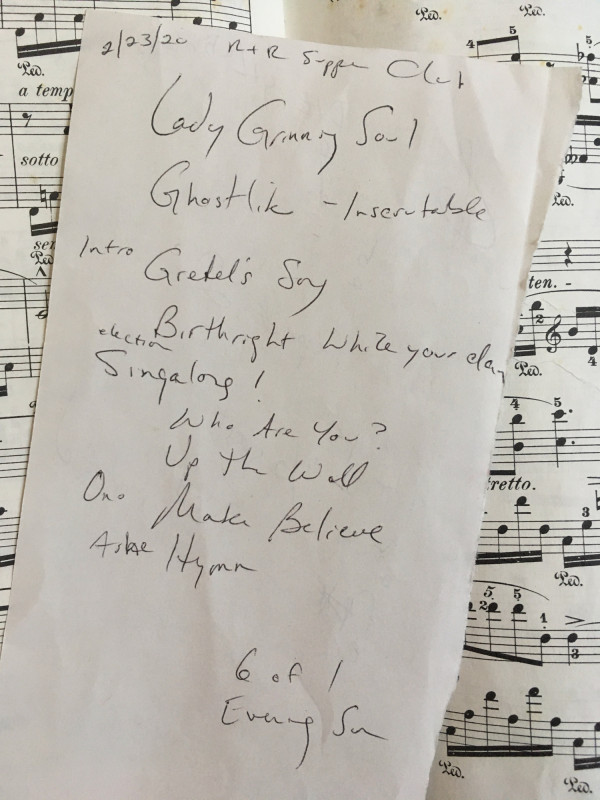 2/23/20 R+R Supper Club
Lady Grinning Soul
Ghostlike - Inscrutable
Intro Gretel's Song
election Birthright While your clay
Singalong!
Who Are You?
Up the Wall
Ono Make Believe
Hymn
6 of 1
Evening Sun
Ped.
Ped.
Ped.
a temp
sotto
Ped.
Ped.
ten. -
Ped.
retto.
Ped.
Ped.
Ped.